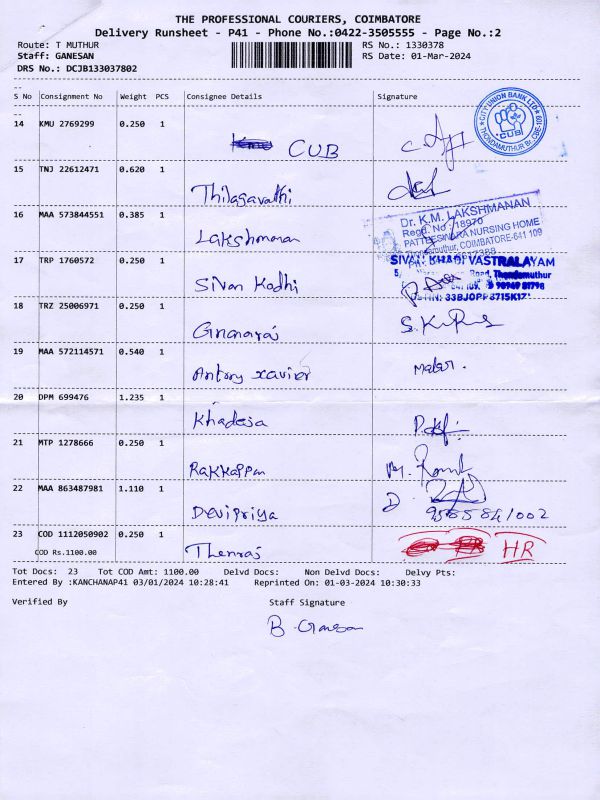 THE PROFESSIONAL COURIERS, COIMBATORE
Delivery Runsheet - P41 - Phone No.:0422-3505555 - Page No.:2
Route: T MUTHUR RS No.: 1330378
Staff: GANESAN RS Date: 01-Mar-2024
DRS No.: DCJB133037802
S No Consignment No Weight PCS Consignee Details Signature
14 KMU 2769299 0.250 1
CUB
CITY UNION BANK LTD
CUB
15 TNJ 22612471 0.620 1
Thilagavathi
16 MAA 573844551 0.385 1
Lakshmanan
Dr. K.M. LAKSHMANAN
Regd. No : 18970
PATTEESWARA NURSING HOME
Thondamuthur, COIMBATORE-641 109
17 TRP 1760572 0.250 1
Sivan Kadhi
SIVAN KHADI VASTRALAYAM
Road, Thondamuthur
90949 81798
18 TRZ 25006971 0.250 1
Gnanaraj
19 MAA 572114571 0.540 1
Antony xavier
20 DPM 699476 1.235 1
Khadeja
21 MTP 1278666 0.250 1
Rakkappan
22 MAA 863487981 1.110 1
Devipriya
23 COD 1112050902 0.250 1
COD Rs.1100.00
Thenraj
HR
Tot Docs: 23 Tot COD Amt: 1100.00 Delvd Docs: Non Delvd Docs: Delvy Pts:
Entered By :KANCHANAP41 03/01/2024 10:28:41 Reprinted On: 01-03-2024 10:30:33
Verified By Staff Signature
B. Ganesan